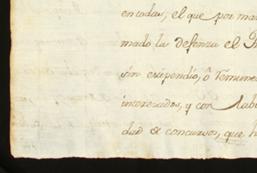 en todas, el que por ma
mado la defenza el
sin estipendio, ô
interezados, y con
dad de concursos, que h